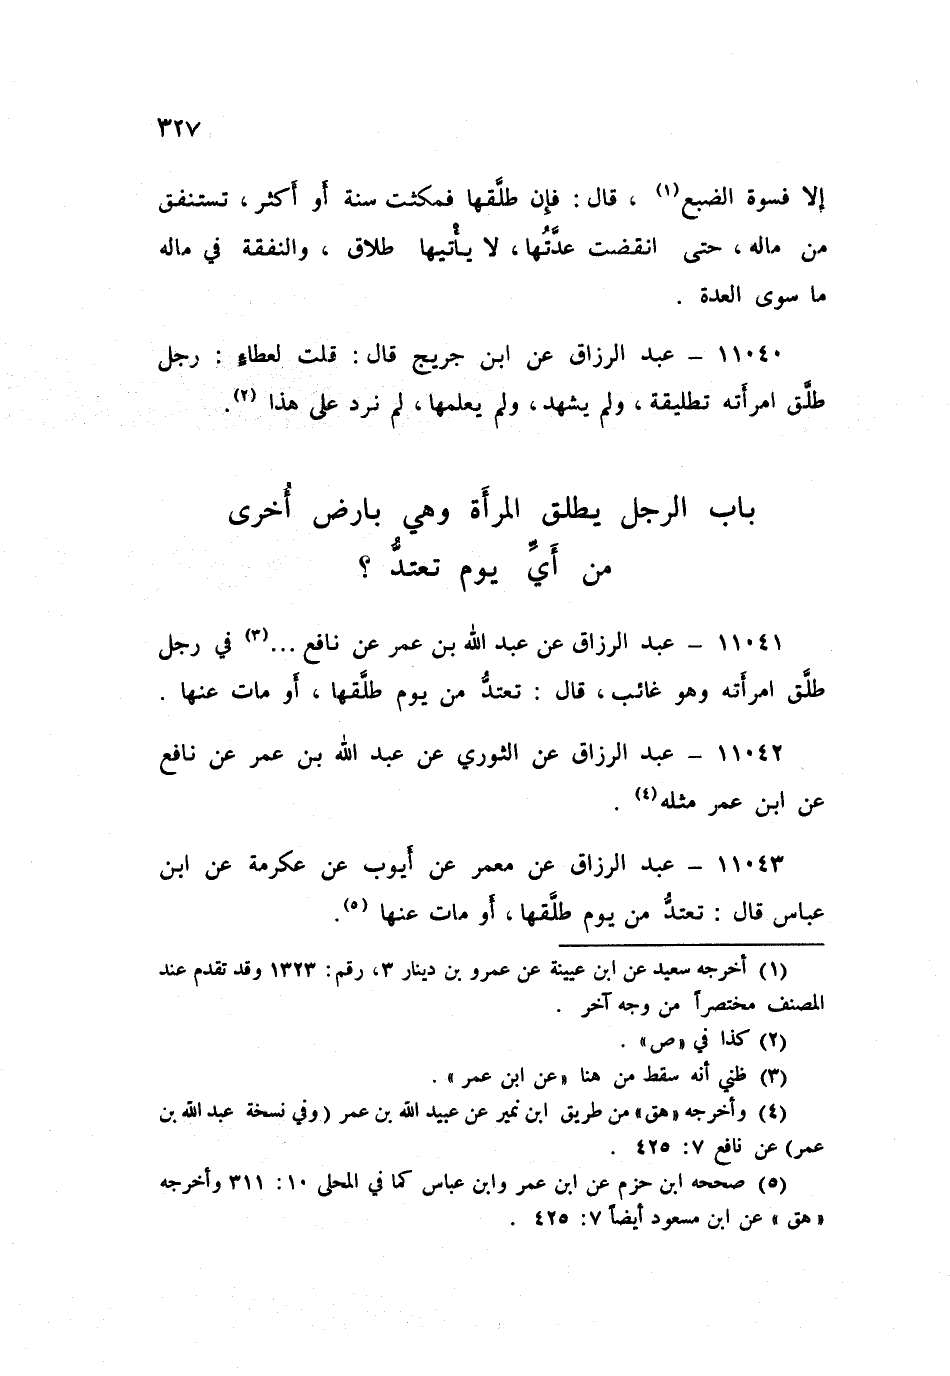 ٣٢٧
إلا فسوة الضبع(١) ، قال : فإن طلَّقها فمكثت سنة أو أكثر ، تستنفق
من ماله ، حتى انقضت عدَّتُها ، لا يأْتيها طلاق ، والنفقة في ماله
ما سوى العدة .
١١٠٤٠ – عبد الرزاق عن ابن جريج قال : قلت لعطاء : رجل
طلَّق امرأَته تطليقة ، ولم يشهد ، ولم يعلمها ، لم نرد على هذا (٢).
باب الرجل يطلق المرأَة وهي بارض أُخرى
من أَيِّ يوم تعتدُّ ؟
١١٠٤١ – عبد الرزاق عن عبد الله بن عمر عن نافع ...(٣) في رجل
طلَّق امرأَته وهو غائب ، قال : تعتدُّ من يوم طلَّقها ، أَو مات عنها .
١١٠٤٢ – عبد الرزاق عن الثوري عن عبد الله بن عمر عن نافع
عن ابن عمر مثله(٤) .
١١٠٤٣ – عبد الرزاق عن معمر عن أَيوب عن عكرمة عن ابن
عباس قال : تعتدُّ من يوم طلَّقها ، أَو مات عنها (٥).
(١) أخرجه سعيد عن ابن عيينة عن عمرو بن دينار ٣، رقم : ١٣٢٣ وقد تقدم عند
المصنف مختصراً من وجه آخر .
(٢) كذا في «ص» .
(٣) ظني أنه سقط من هنا «عن ابن عمر» .
(٤) وأخرجه «هق» من طريق ابن نمير عن عبيد الله بن عمر (وفي نسخة عبد الله بن
عمر) عن نافع ٧: ٤٢٥ .
(٥) صححه ابن حزم عن ابن عمر وابن عباس كما في المحلى ١٠ : ٣١١ وأخرجه
«هق» عن ابن مسعود أيضاً ٧: ٤٢٥ .